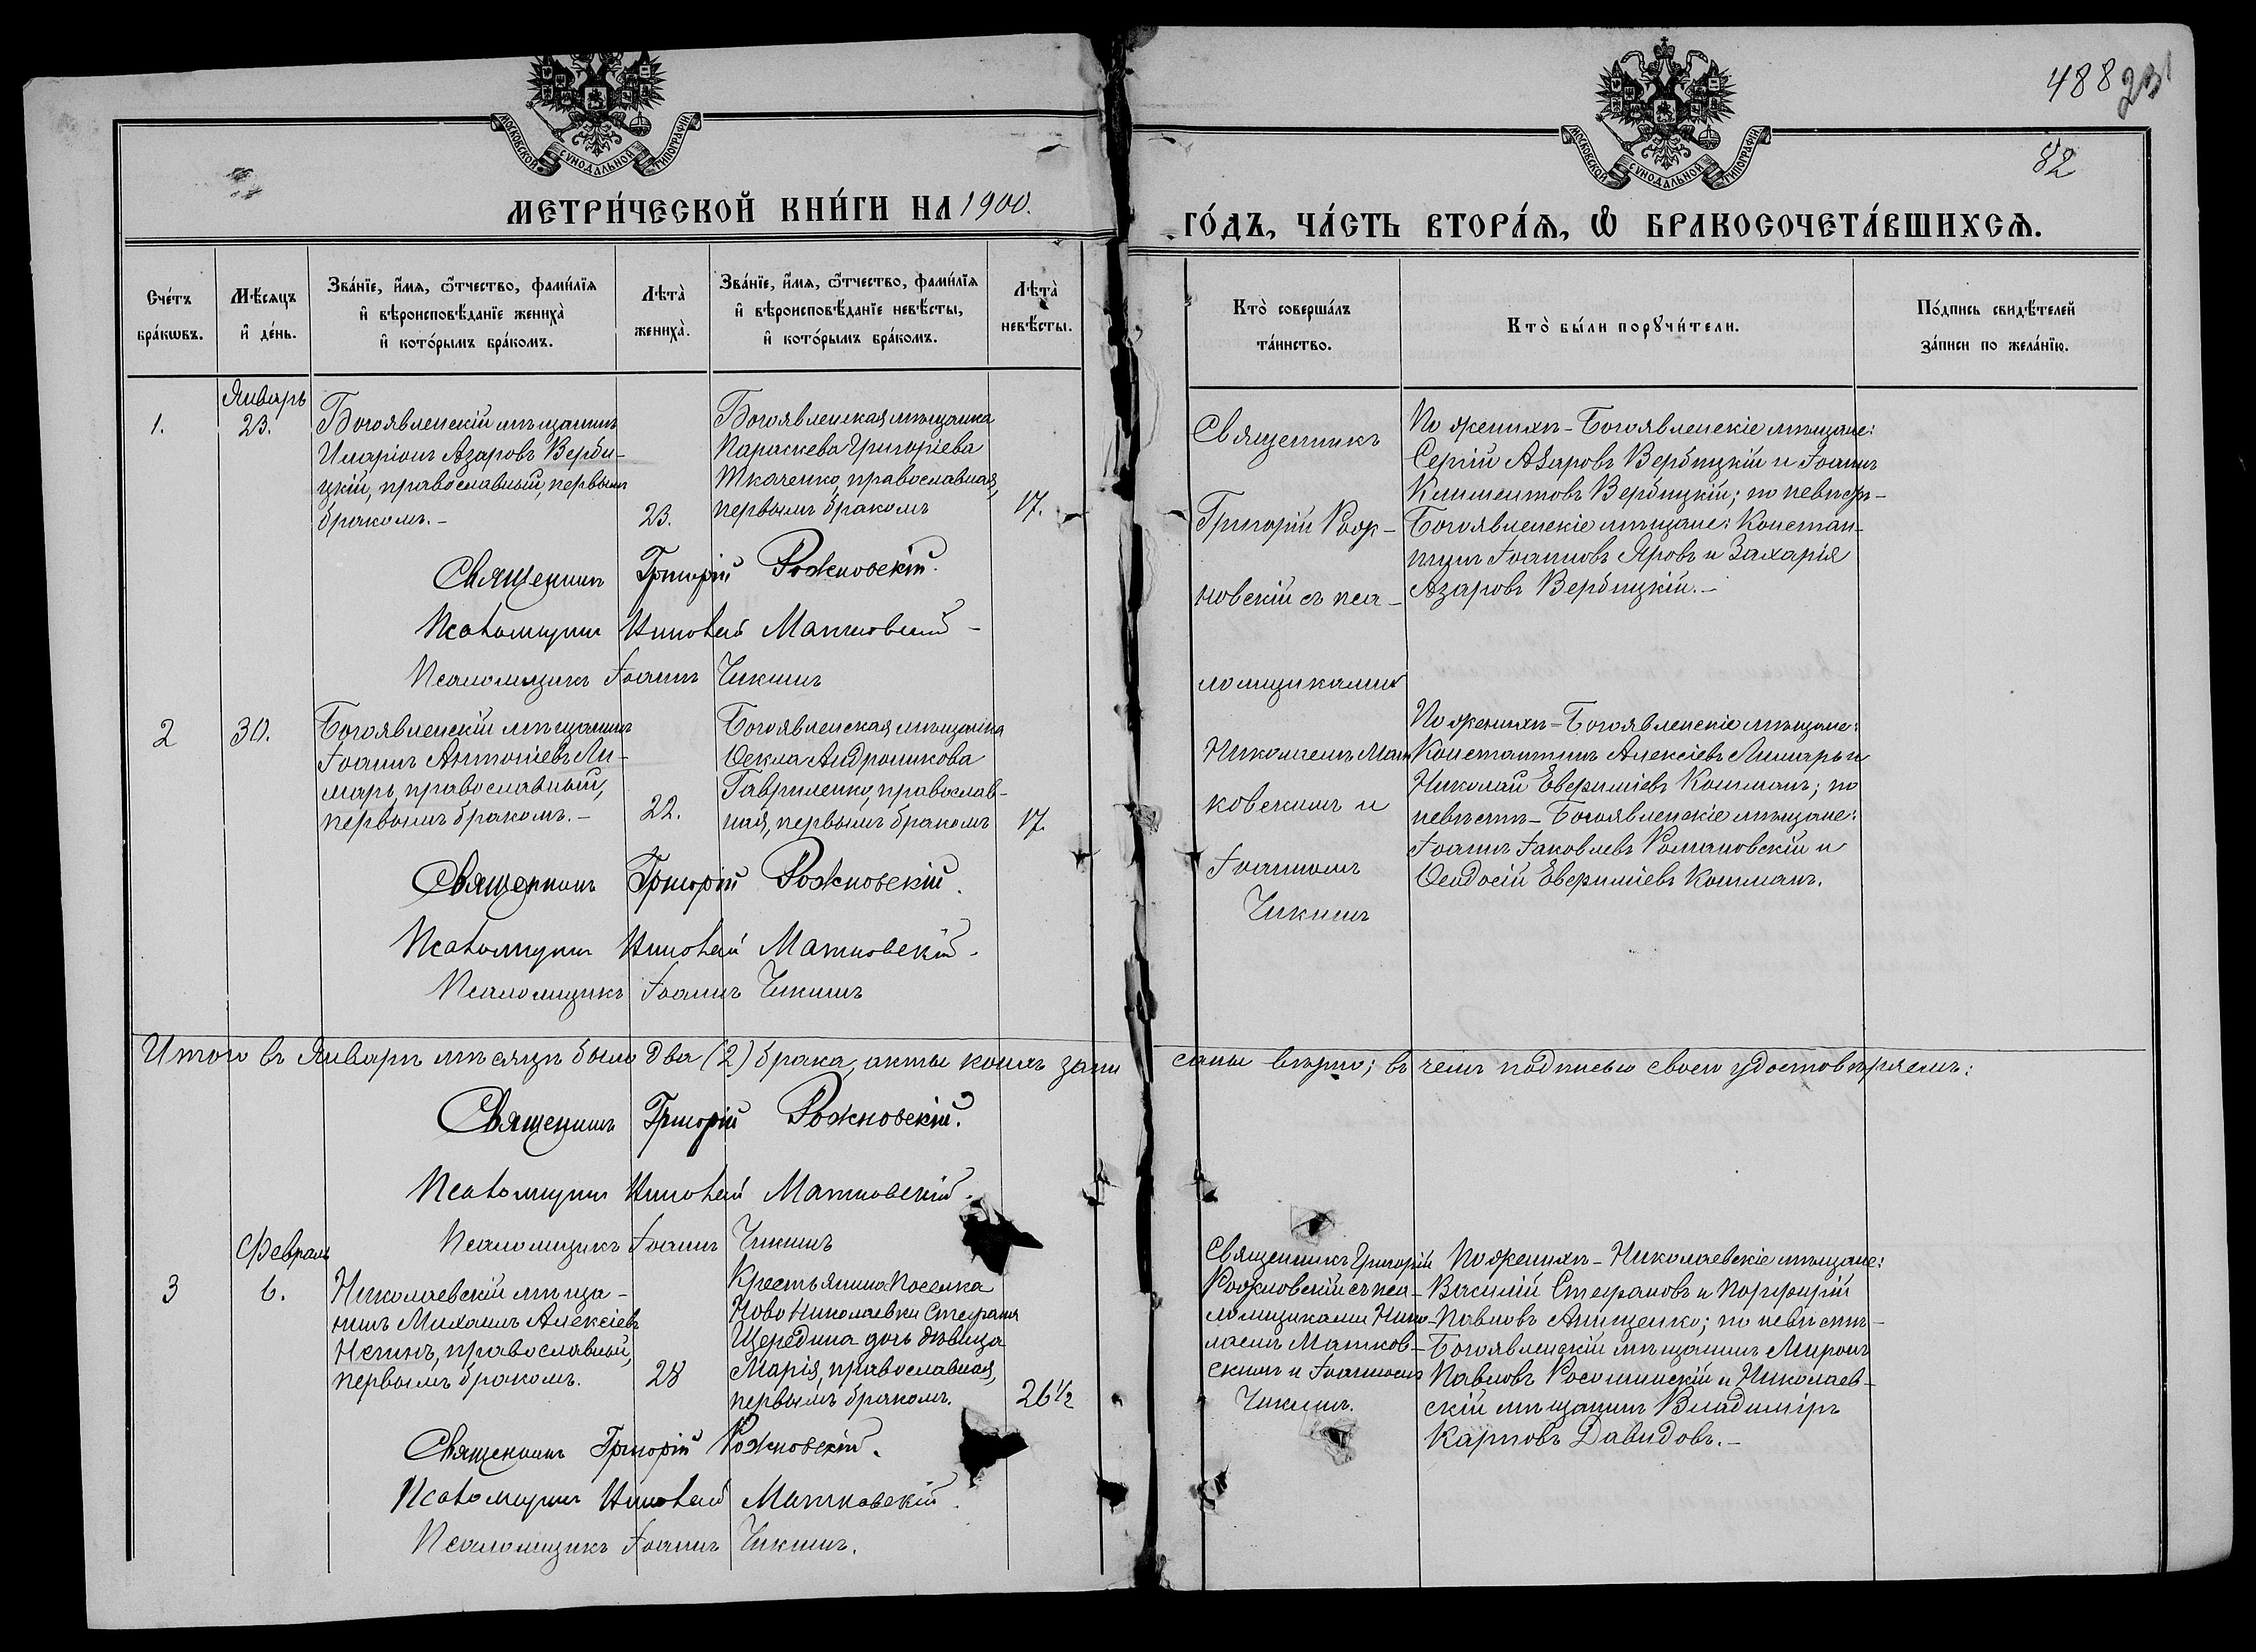 488 23
82
МОСКОВСКОЙ СУНОДАЛЬНОЙ ТИПОГРАФІИ
МОСКОВСКОЙ СУНОДАЛЬНОЙ ТИПОГРАФІИ
МЕТРИ́ЧЕСКОЙ КНИ́ГИ НА 1900.
ГО́ДЪ, ЧА́СТЬ ВТОРА́Ѧ, Ѽ БРАКОСОЧЕТА́ВШИХСѦ.
Сче́тъ
бра́кѡвъ.
Мѣ́сяцъ
и҆ де́нь.
Зва́нїе, и҆́мѧ, ѻ҆́тчество, фами́лїѧ
и҆ вѣроисповѣ́данїе жениха̀
и҆ кото́рымъ бра́комъ.
Лѣта̀
жениха̀.
Зва́нїе, и҆́мѧ, ѻ҆́тчество, фами́лїѧ
и҆ вѣроисповѣ́данїе невѣ́сты,
и҆ кото́рымъ бра́комъ.
Лѣта̀
невѣ́сты.
Кто̀ соверша́лъ
та́инство.
Кто̀ бы́ли порꙋчи́тели.
По́дпись свидѣ́телей
за́писи по жела́нїю.
1.
Январь
23.
Богоявленскій мѣщанинъ
Иларіонъ Азаровъ Верби-
цкій, православный, первымъ
бракомъ.-
23.
Богоявленская мѣщанка
Параскева Григоріева
Ткаченко, православная,
первымъ бракомъ
17.
Священникъ
Григорій Рож-
новскій съ пса-
ломщиками
Николаемъ Мат
ковскимъ и
Іоанномъ
Чикинъ
По женихѣ-Богоявленскіе мѣщане:
Сергій Азаровъ Вербицкій и Іоаннъ
Климентовъ Вербицкій; по невѣстѣ-
Богоявленскіе мѣщане: Констан-
тинъ Іоанновъ Яровъ и Захарія
Азаровъ Вербицкій.-
Священникъ Григорій Рожновскій.
Псаломщикъ Николай Матковскій-
Псаломщикъ Іоаннъ Чикинъ
2
30.
Богоявленскій мѣщанинъ
Іоаннъ Антоніевъ Ли-
марь, православный,
первымъ бракомъ.-
22.
Богоявленская мѣщанка
Ѳекла Андроникова
Гавриленко, православ-
ная, первымъ бракомъ
17.
По женихѣ-Богоявленскіе мѣщане:
Константинъ Алексіевъ Лимарь и
Николай Евфиміевъ Кошманъ; по
невѣстѣ-Богоявленскіе мѣщане:
Іоаннъ Іаковлевъ Романовскій и
Ѳеодосій Евфиміевъ Кошманъ.
Священникъ Григорій Рожновскій.
Псаломщикъ Николай Матковскій.
Псаломщикъ Іоаннъ Чикинъ
Итого въ Январѣ мѣсяцѣ было два (2) брака, акты коихъ запи
саны вѣрно; въ чемъ подписью своею удостовѣряемъ:
Священникъ Григорій Рожновскій.
Псаломщикъ Николай Матковскій.
Псаломщикъ Іоаннъ Чикинъ
3
Февраль
6.
Николаевскій мѣща-
нинъ Михаилъ Алексіевъ
православный,
первымъ бракомъ.
28
Крестьянина Поселка
Ново Николаевки Стефана
Щередина дочь дѣвица
Марія, православная,
первымъ бракомъ.
26½
Священникъ Григорій
Рожновскій съ пса-
ломщиками Нико-
лаемъ Матков-
скимъ и Іоанномъ
Чикинъ.
По женихѣ-Николаевскіе мѣщане:
Василій Стефановъ и Порфирій
Павловъ Анищенко; по невѣстѣ-
Богоявленскій мѣщанинъ Миронъ
Павловъ Росошинскій и Николаев-
скій мѣщанинъ Владиміръ
Карповъ Давидовъ.-
Священникъ Григорій Рожновскій.
Псаломщикъ Николай Матковскій.
Псаломщикъ Іоаннъ Чикинъ.